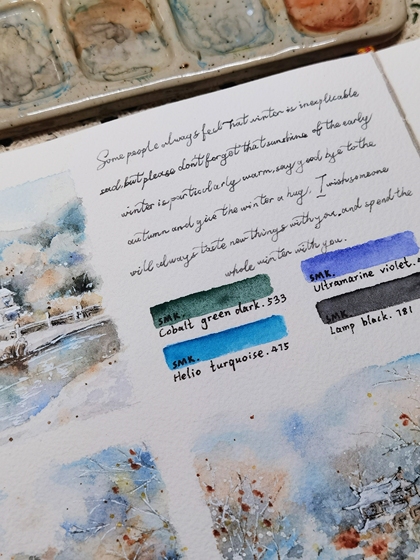 Some people always feel That winter is inexplicable
sad, but please don't forget that sunshine of the early
winter is particularly warm, say good bye to the
autumn and give the winter a hug, I wish someone
will always taste new things with you, and spend the
whole winter with you.
SMK.
Cobalt green dark. 533
SMK.
Helio turquoise. 475
SMK.
Ultramarine violet.
SMK.
Lamp black. 781